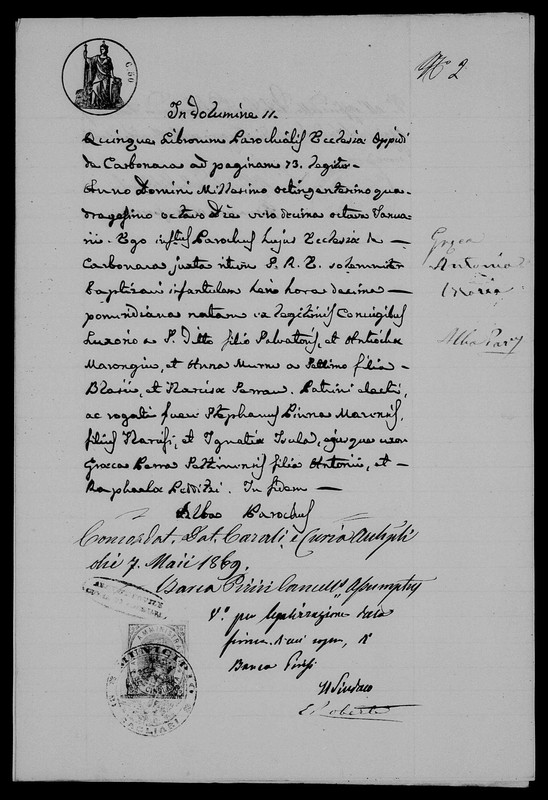 C. 50
Nº 2
In Volumine 11.
Quinque Librorum Parochialis Ecclesia Oppidi
de Carbonara ad paginam 73. legitur
Anno Domini Millesimo octingentesimo qua-
dragesimo octavo Die vero decima octava Janua-
rii. Ego infrtus Parochus hujus Ecclesia de
Carbonara juxta ritum S. R. E. solemniter
baptizavi infantulam hora decima
pomeridiana natam ex legitimis Conjugibus
Luxorio a S. Ditto filio Salvatoris, et Antiocha
Marongiu, et Anna Murru a Settimo filia
Blasii, et Narcisa Perrau. Patrini electi,
ac rogati fuere Stephanus Pinna Marensis,
filius Narcisi, et Ignatia Isula, ejusque uxor
Greca Perra Septimensis filia Antonii, et
Raphaela Pedditzi. In fidem
Albao Parochus
Greca
Antonia
Maria
Alba Par
Concordat. Dat. Carali e Curia
die 7. Maii 1869.
Barca Pirisi Cancells Assumptus
Vº. per legalizzazione della
firma di cui sopra, di
Barca Pirisi
Il Sindaco
AMMINISTR
MUNICIPIO DI CAGLIARI